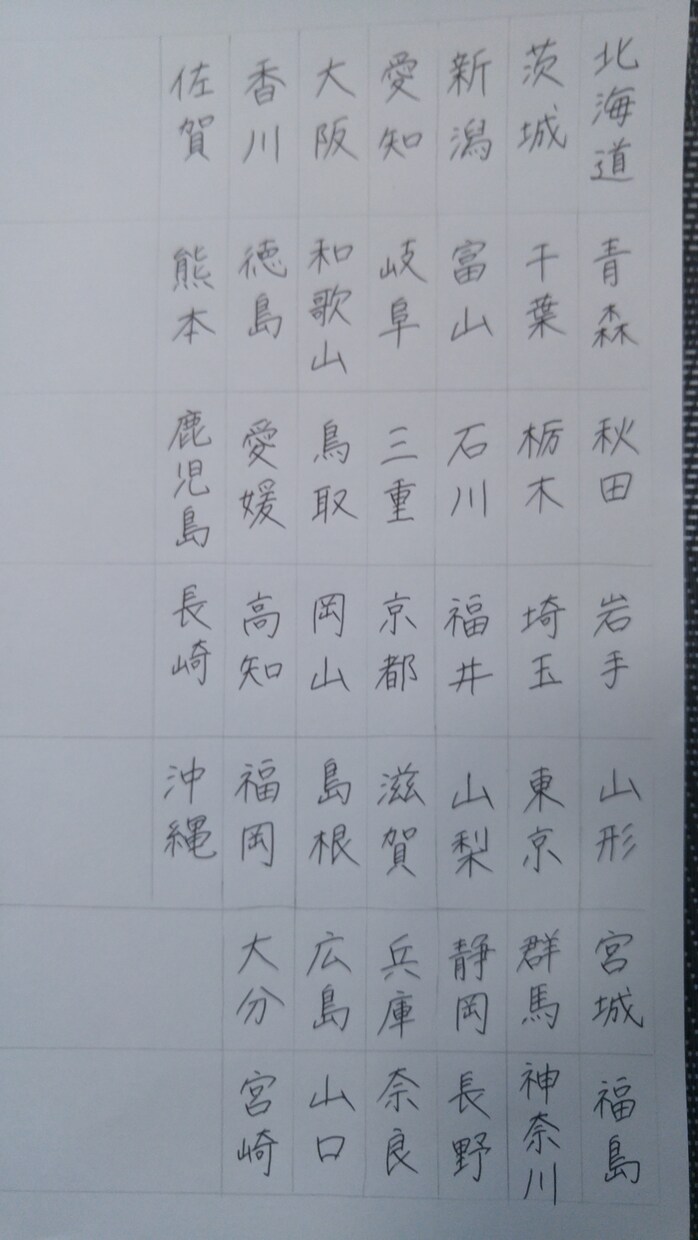 北海道 青森 秋田 岩手 山形 宮城 福島
茨城 千葉 栃木 埼玉 東京 群馬 神奈川
新潟 富山 石川 福井 山梨 静岡 長野
愛知 岐阜 三重 京都 滋賀 兵庫 奈良
大阪 和歌山 鳥取 岡山 島根 広島 山口
香川 徳島 愛媛 高知 福岡 大分 宮崎
佐賀 熊本 鹿児島 長崎 沖縄